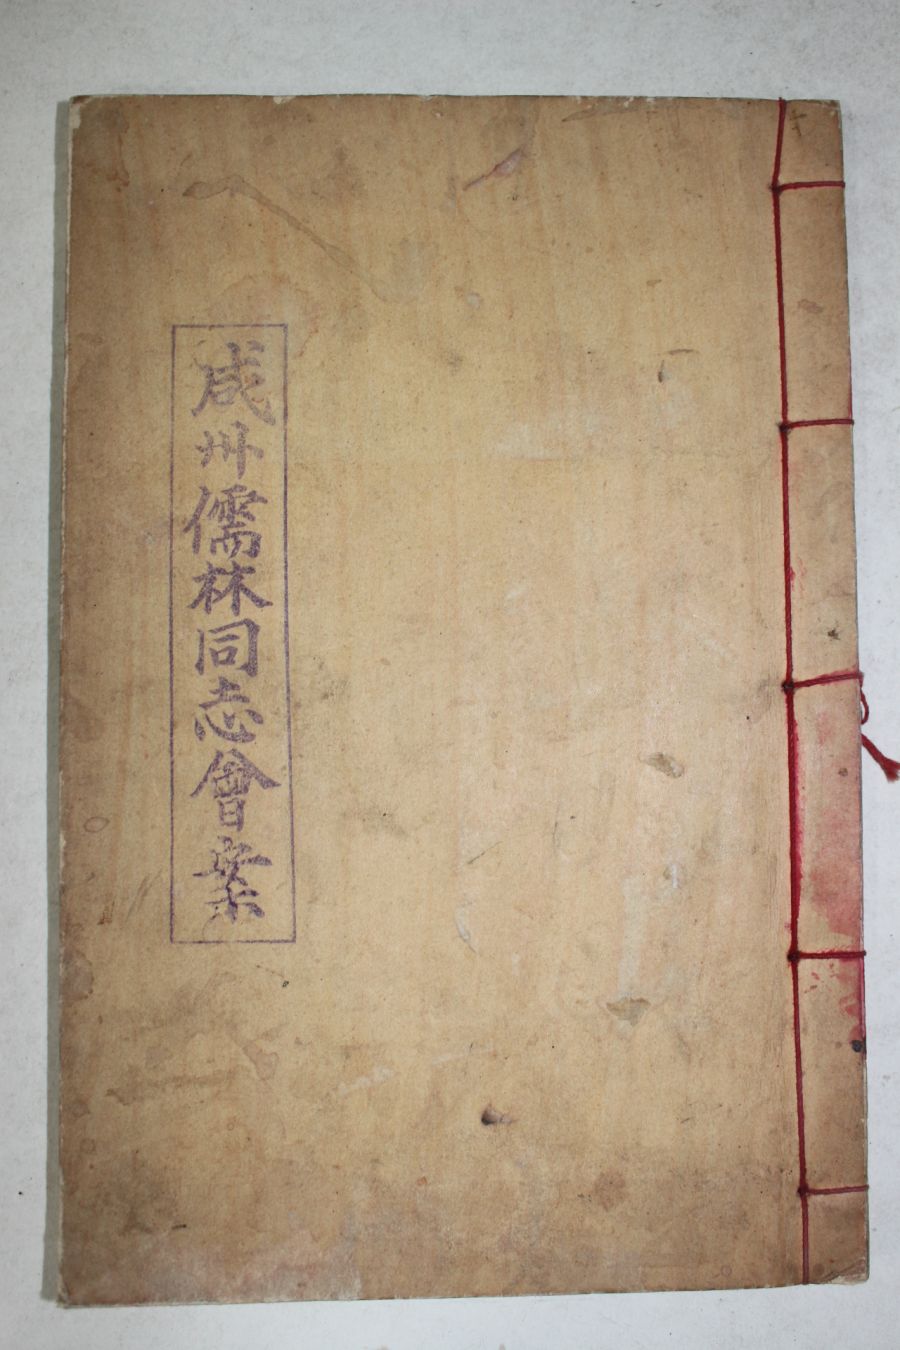 咸州儒林同志會案